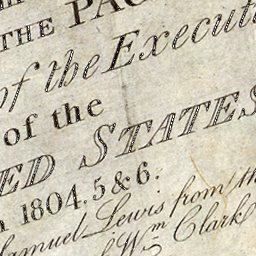 THE PAC
of the Executi
of the
ED STATES
1804.5&6.
Samuel Lewis from th
Wm Clark